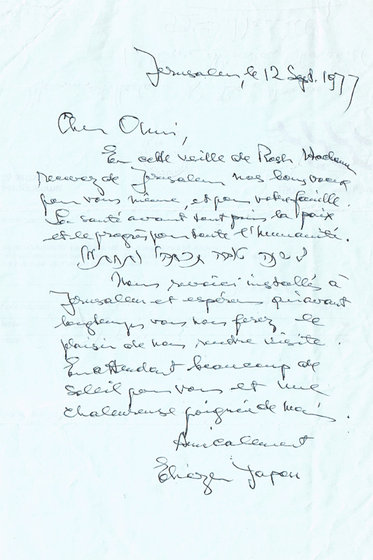 Jerusalem, le 12 Sept. 1977
Cher Ami,
En cette veille de Rosh Hachana
recevez de Jerusalem nos bons vœux
pour vous même, et pour votre famille.
La santé avant tout puis la paix
et le progrès pour toute l'humanité.
שנה טובה תכתבו ותחתמו
Nous revoici installés à
Jerusalem et espérons qu'avant
longtemps vous nous ferez le
plaisir de nous rendre visite.
En attendant beaucoup de
soleil pour vous et une
chaleureuse poignée de main.
Amicalement